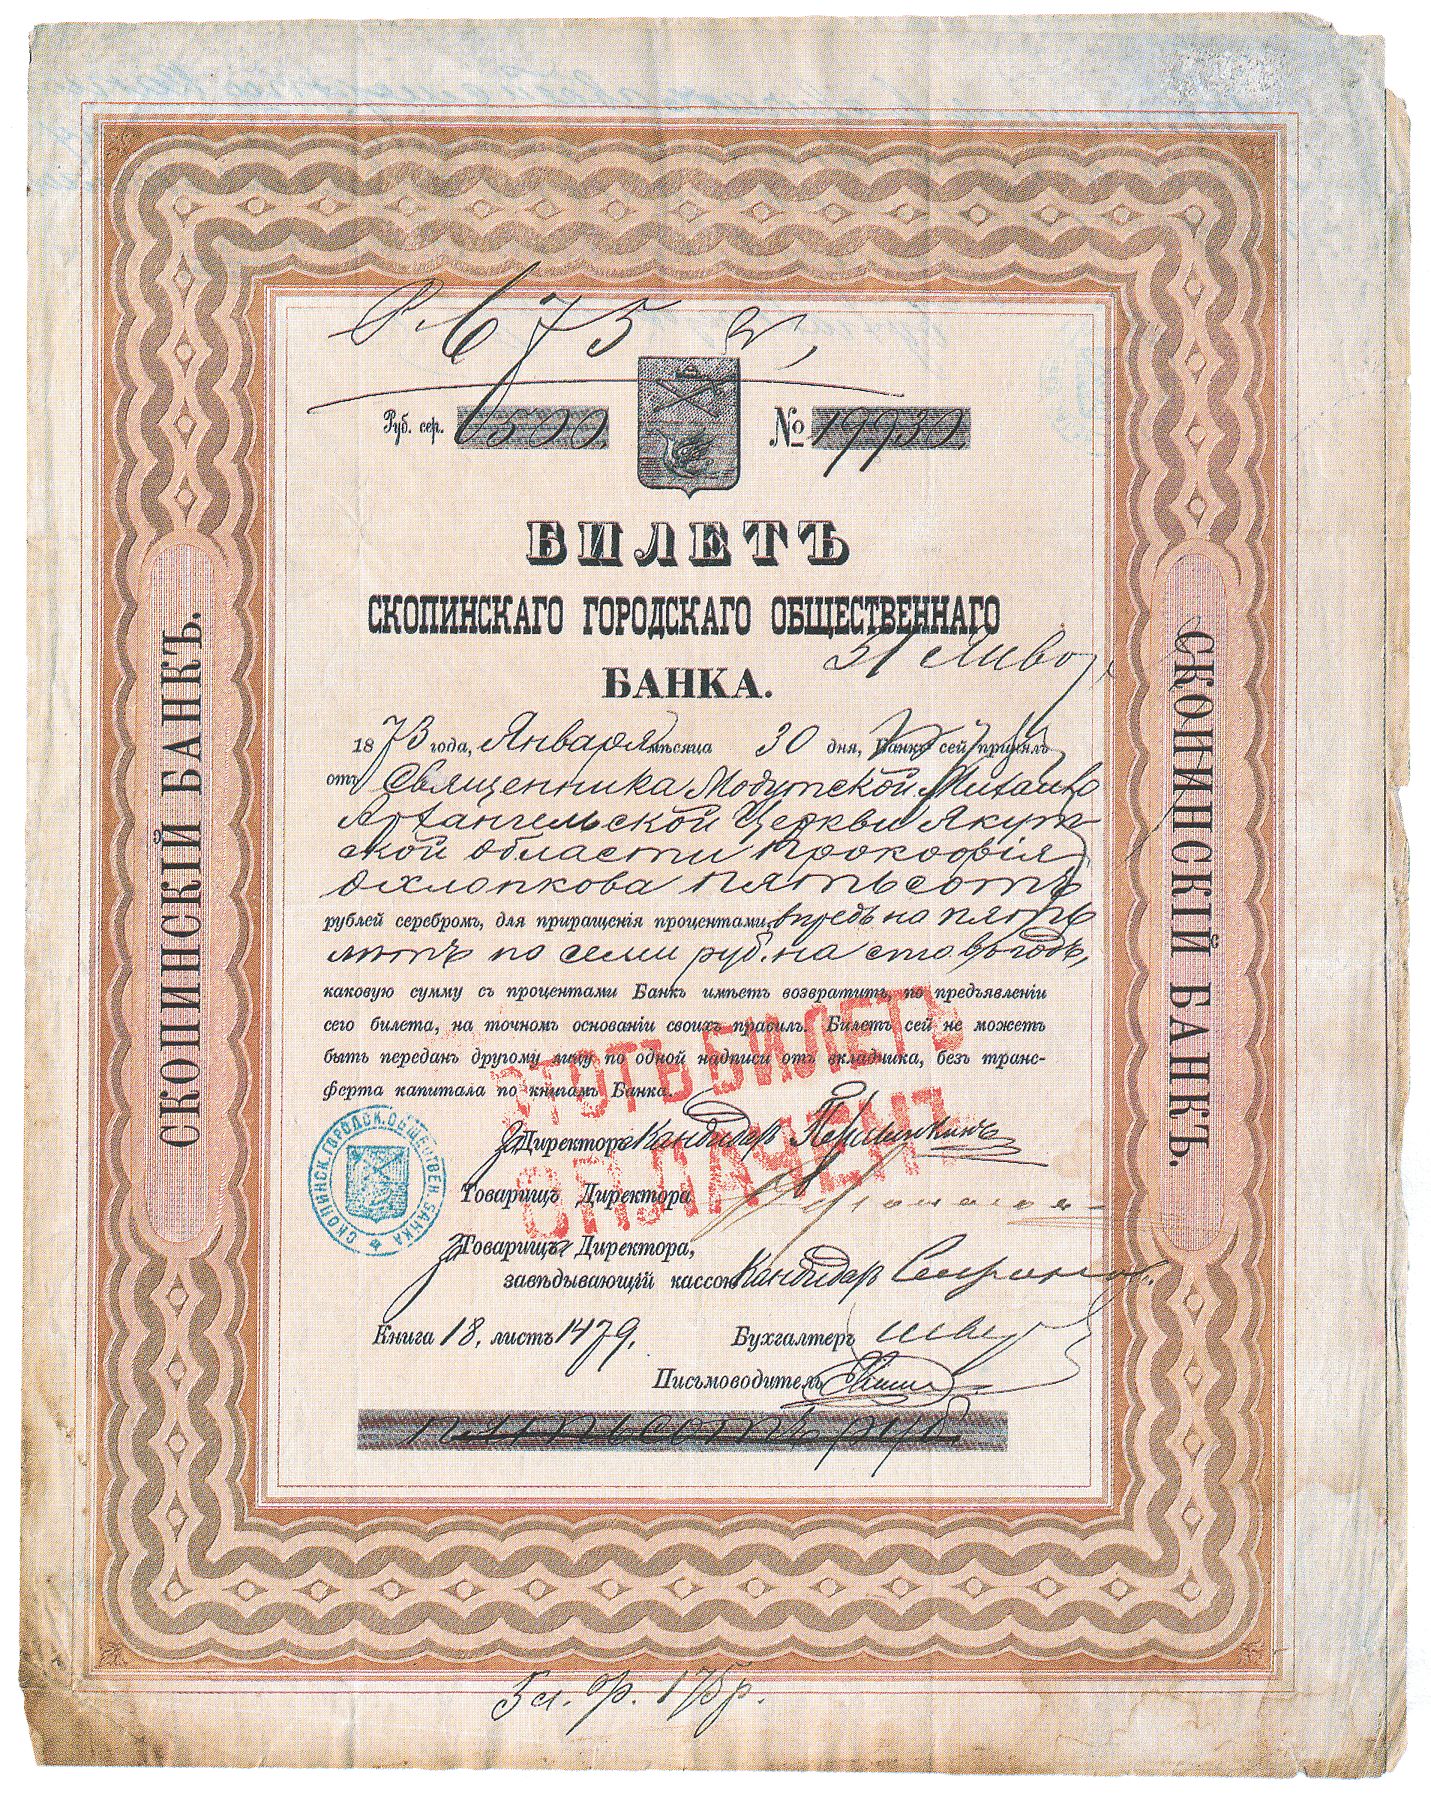 675
Руб. сер. 500 № 19930
БИЛЕТЪ
СКОПИНСКАГО ГОРОДСКАГО ОБЩЕСТВЕННАГО
БАНКА.
31
1873 года, Января мѣсяца 30 дня, Банкъ сей принялъ
отъ Священника Модутской Михаило
Архангельской Церкви Якут-
ской области Прокофія
Охлопкова пятьсотъ
рублей серебромъ, для приращенія процентами, впредь на пять
лѣтъ по семи руб. на сто въ годъ,
каковую сумму съ процентами Банкъ имѣетъ возвратить, по предъявленіи
сего билета, на точномъ основаніи своихъ правилъ. Билетъ сей не можетъ
быть переданъ другому лицу по одной надписи отъ вкладчика, безъ транс-
ферта капитала по книгамъ Банка.
ЭТОТЪ БИЛЕТЪ
ОПЛАЧЕНЪ
За Директора Кандидатъ
Товарищъ Директора
За Товарища Директора,
завѣдывающій кассою Кандидатъ
Книга 18, листъ 1479. Бухгалтеръ
Письмоводитель
пятьсотъ руб.
СКОПИНСК. ГОРОДСК. ОБЩЕСТВЕН. БАНКА
СКОПИНСКІЙ БАНКЪ.
СКОПИНСКІЙ БАНКЪ.
175 р.